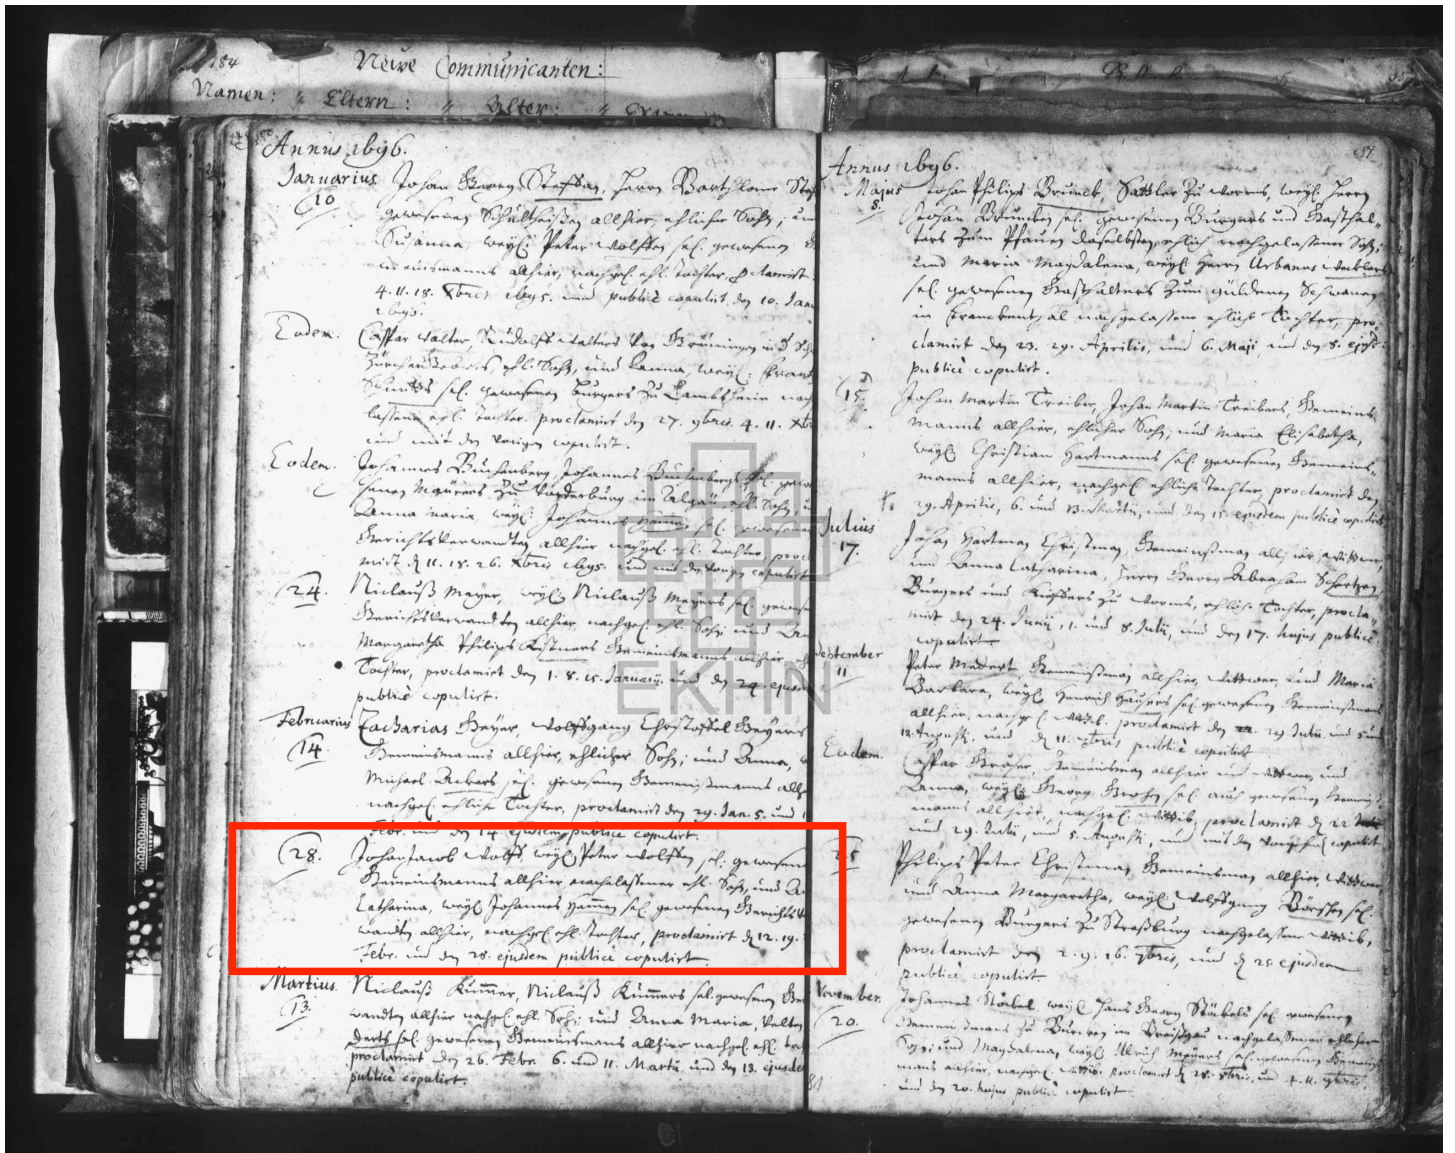 184
Newe Communicanten:
Namen: " Eltern: " Alter: "
Annus 1696.
Januarius. Johan Georg Steffan, Herrn Barthlome
10 gewesenen Schultheißen allhier, ehlicher Sohn; und
Susanna, weyl. Peter Wolffen sel. gewesenen
meinsmanns allhier, nachgel. ehl. Tochter,
4. 11. 18. Xbris 1695. und publicè copulirt den 10.
Eodem. Caspar Walter, Rudolff Walters von Grüningen
ehl. Sohn, und Anna, weyl.
sel. gewesenen Burgers zu Lambsheim
lassene ehl. Tochter. proclamirt den 27. 9bris. 4. 11.
und mit den vorigen copulirt.
Eodem. Johannes Buchenberg, Johannes Buchenbergs sel.
senen Maurers zu Vorderburg im Algäu ehl. Sohn,
Anna Maria, weyl. Johannes Hammen sel. gewesenen
Gerichtsverwandten allhier nachgel. ehl. Tochter,
mirt d. 11. 18. 26. Xbris 1695. und mit den vorigen copulirt
24. Niclauß Meyer, weyl. Niclauß Meyers sel.
Gerichtsverwandten allhier, nachgel. ehl. Sohn; und
Margaretha Philips Kistners Gemeinsmanns allhier
Tochter, proclamirt den 1. 8. 15. Januarij. und den 24.
publicè copulirt.
Februarius Zacharias Geyer, Wolffgang Christoffel Geyers
14. Gemeinsmanns allhier, ehlicher Sohn; und Anna,
Michael sel. gewesenen Gemeinsmanns
nachgel. ehliche Tochter, proclamirt den 29. Jan. 5. und
Febr. und den 14. ejusdem publicè copulirt.
28. Johan Jacob Wolff, weyl. Peter Wolffen sel. gewesenen
Gemeinsmanns allhier, nachgelassener ehl. Sohn, und
Catharina, weyl. Johannes Hammen sel. gewesenen
wandten allhier, nachgel. ehl. Tochter, proclamirt d. 12. 19.
Febr. und den 28. ejusdem publicè copulirt.
Martius. Niclauß Kümmer, Niclauß Kümmers sel. gewesenen
13. wandten allhier nachgel. ehl. Sohn; und Anna Maria,
sel. gewesenen Gemeinsmanns allhier nachgel. ehl.
proclamirt den 26. Febr. 6. und 11. Martij. und den 13.
publicè copulirt.
Annus 1696.
Majus Johan Philips Brunck, Sattler zu Worms, weyl. Herrn
8. Johan Bruncken sel. gewesenen Burgers und Gasthal-
ters zum Pfauen daselbsten, ehlich nachgelassener Sohn;
und Maria Magdalena, weyl. Herrn Urbanus
sel. gewesenen Gasthalters zum güldenen Schwanen
in Franckenthal nachgelassene ehliche Tochter, pro-
clamirt den 23. 29. Aprilis, und 6. Maji und den 8. ejusd.
publicè copulirt.
15. Johan Martin Treiber, Johan Martin Treibers Gemeins-
manns allhier, ehlicher Sohn; und Maria Elisabetha,
weyl. Christian Hartmanns sel. gewesenen Gemeins-
manns allhier, nachgel. ehliche Tochter, proclamirt den
29. Aprilis, 6. und 13. und den 15. ejusdem publicè copulirt
Julius Johan Hartman Christman, Gemeinsman allhier, wittwer,
17. und Anna Catharina, Herrn Georg Abraham
Burgers und Kieffers zu Worms, ehliche Tochter, procla-
mirt den 24. Junij, 1. und 8. Julij, und den 17. hujus publicè
copulirt
September Peter Gemeinsman allhier, wittwer, und Maria
11 Barbara, weyl. Henrich sel. gewesenen Gemeinsmans
allhier, nachgel. wittib. proclamirt den 22. 29 Julij. und 5 und
12. Augusti, und d. 11. 7bris publicè copulirt
Eodem. Caspar Gemeinsman allhier und wittwer, und
Anna, weyl. Georg sel. auch gewesenen Gemeinß-
manns allhier, nachgel. wittib, proclamirt d. 22
und 29. Julij, und 5. Augusti, und mit den vorigen copulirt
25 Philips Peter Christman, Gemeinsman allhier, wittwer,
und Anna Margaretha, weyl. Wolffgang sel.
gewesenen Burgers zu Straßburg nachgelassene wittib,
proclamirt den 2. 9. 16. 7bris, und d. 25 ejusdem
publicè copulirt.
November. Johannes Stöckel weyl. Hans Georg Stöckels sel. gewesenen
20. Gemeinsmans zu im Breisgau nachgelassener ehlicher
Sohn; und Magdalena, weyl. Ulrich Meyers sel. gewesenen
mans allhier, nachgel. wittib. proclamirt d. 28. 8bris, und 4. 11. 9bris
und den 20. hujus publicè copulirt.
EKHN